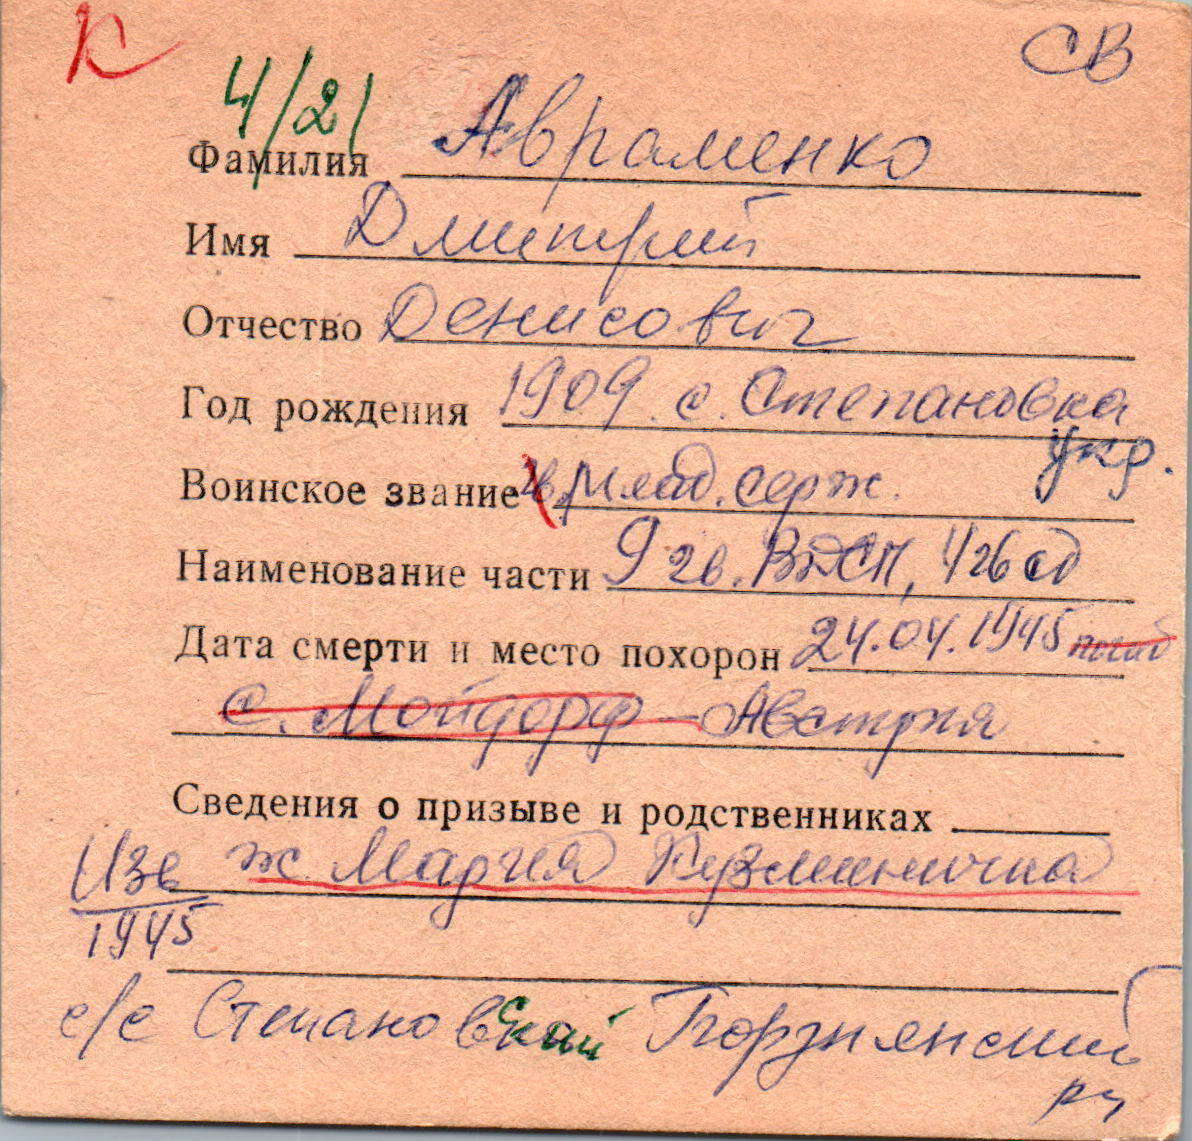 К
СВ
4/21
Фамилия Авраменко
Имя Дмитрий
Отчество Денисович
Год рождения 1909 с. Степановка
Укр.
Воинское звание гв. Млад. серж.
Наименование части 9 гв. ВДСП, 426 сд
Дата смерти и место похорон 24.04.1945 погиб
с. Мойдорф – Австрия
Сведения о призыве и родственниках
Изв ж Мария Кузминична
1945
с/с Степановский